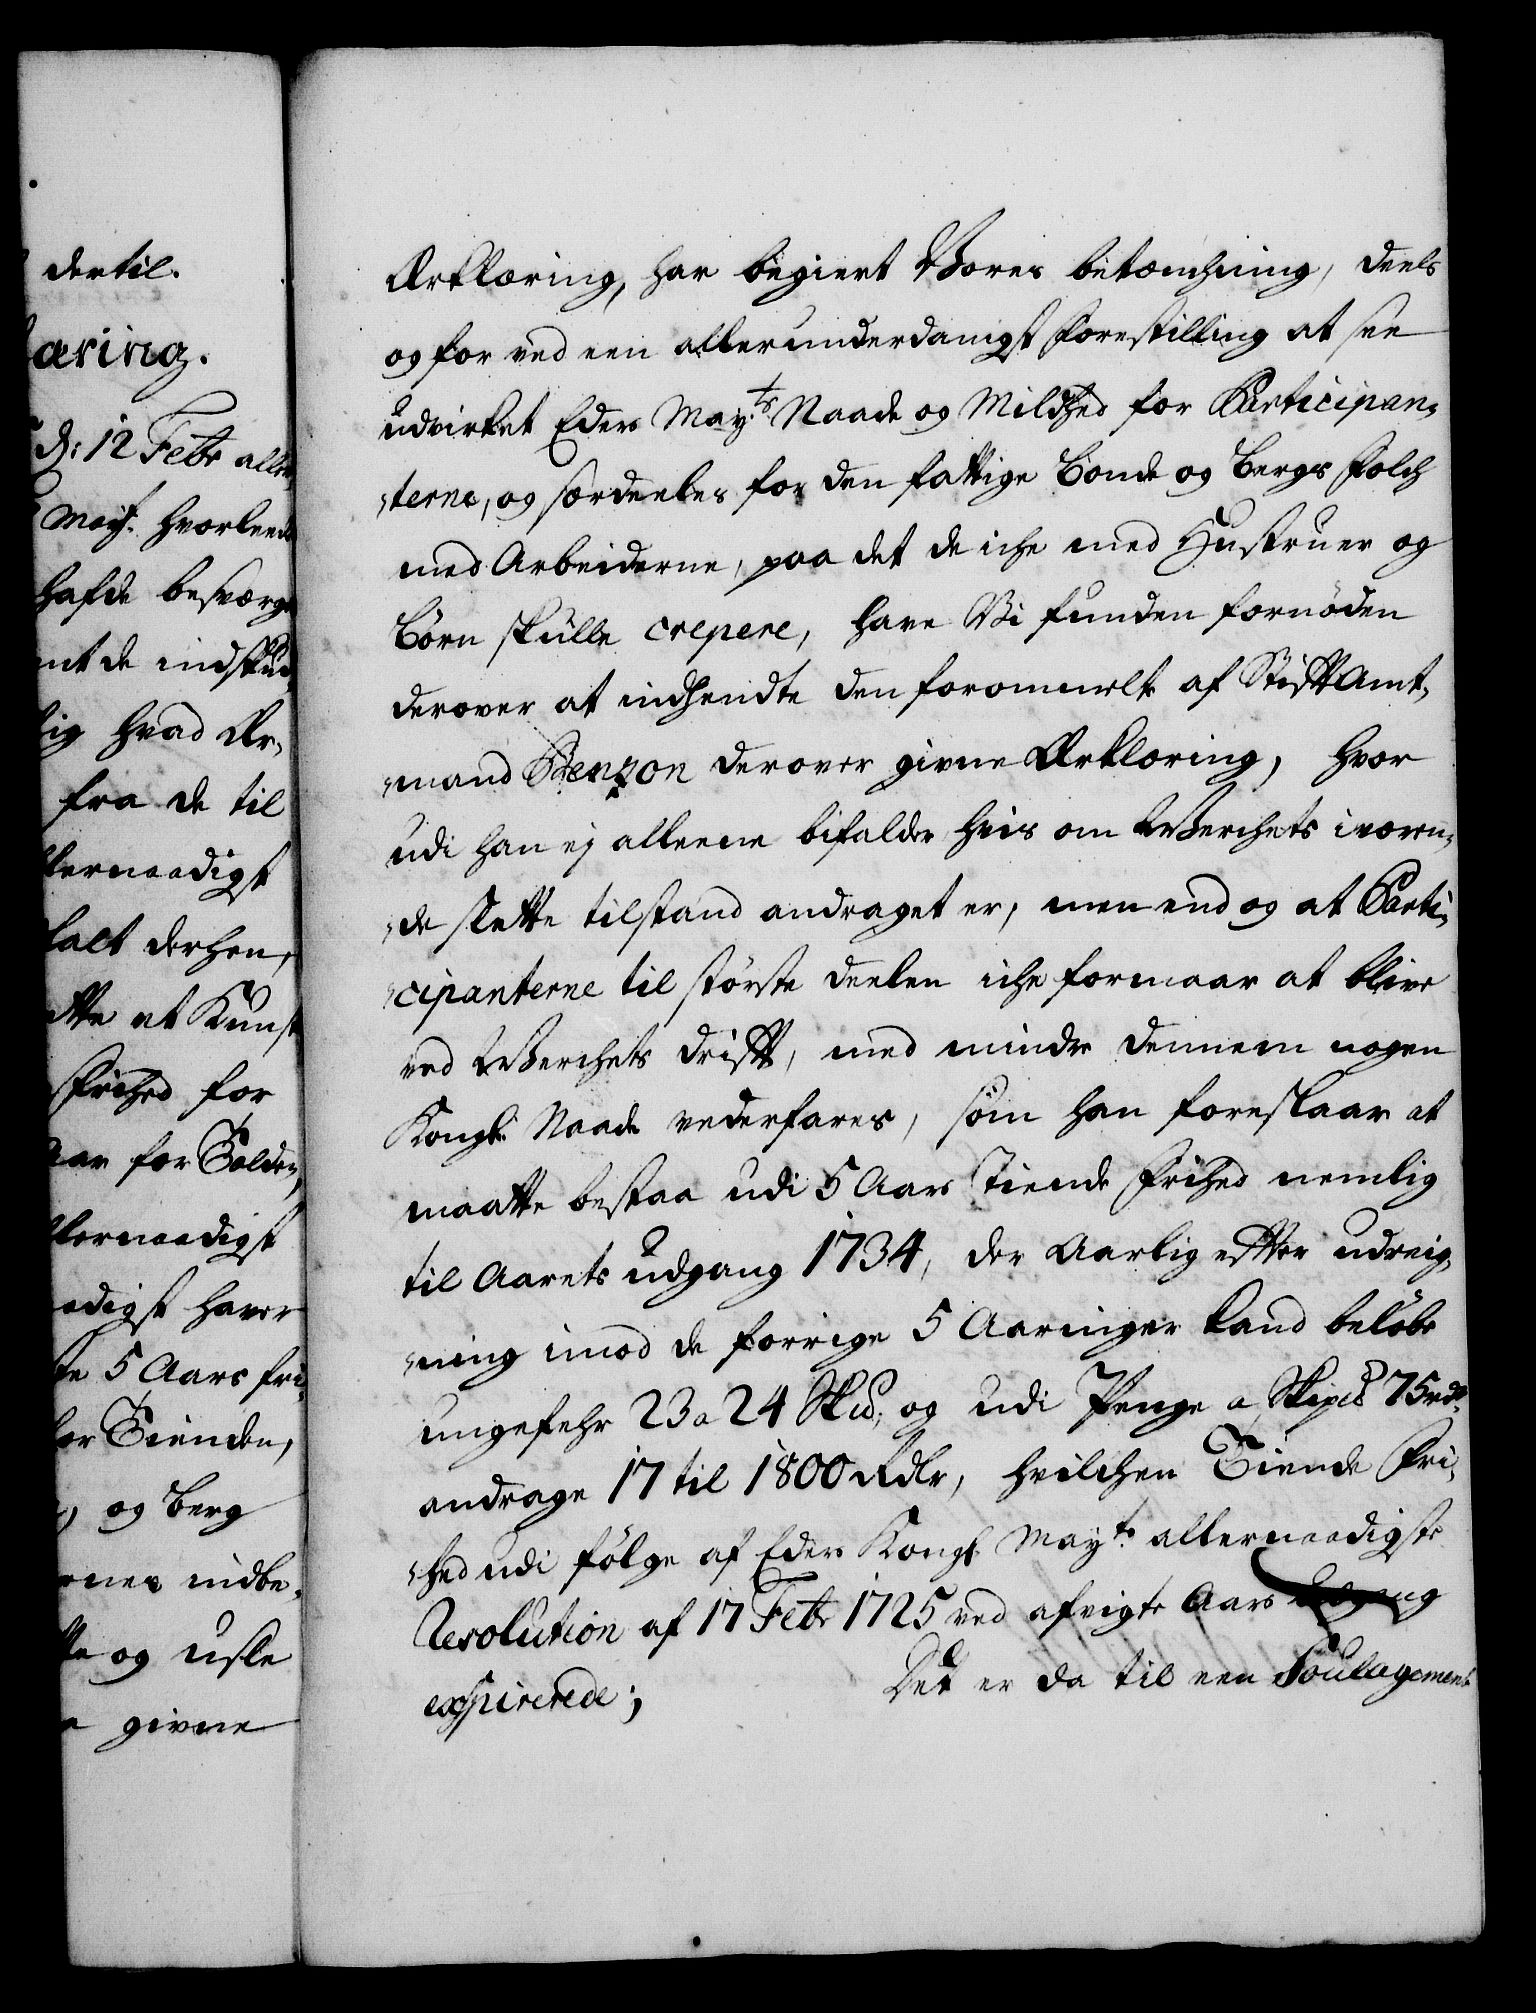 dertil.
æring.
d: 12 Febr aller
Mayt. hvorleedes
hafde besværge
mt de indskud
lig hvad Er-
fra de til
lernaadigst
falt derhen,
dtte et Kunst
Frihed for
aar for Solde,
lernaadigst
adigst haver
te 5 Aars fri-
for Tienden,
og Berg
rnes indbe-
tte og usle
givne
Erklæring, har begiert Vores betænchning, deels
og for ved een allerunderdanigst Forestilling at see
udvirket Eders Mayts Naade og Mildhed for Participan-
-terne, og særdeeles for den fattige Bonde og Bergs Folch
med Arbeiderne, paa det de iche med Hustruer og
Børn skulle crepere, have Vi funden fornøden
derover at indhendte den forommelte af StifftAmt-
-mand Benzon derover givne Erklæring, hvor
udi han ej alleene bifalder hvis om Werchets iværen-
-de slette tilstand andraget er, men end og at Parti-
-cipanterne til største deelen iche formaar at blive
ved Werchets drifft, med mindre dennem nogen
Kongl: Naade vederfares, som han foreslaar at
maatte bestaa udi 5 Aars Tiende Frihed nemlig
til Aarets udgang 1734, der Aarlig effter udreig-
-ning imod de forrige 5 Aaringer kand beløbe
ungefehr 23 a 24 Skd, og udi Penge a Skipd 75 rdr.
andrage 17 til 1800 Rdlr, hvilchen Tiende Fri-
-hed udi følge af Eders Kongl. Mayts. allernaadigste
Resolution af 17 Febr 1725 ved afvigte Aars udgang
expirerede; Det er da til een Soulagement